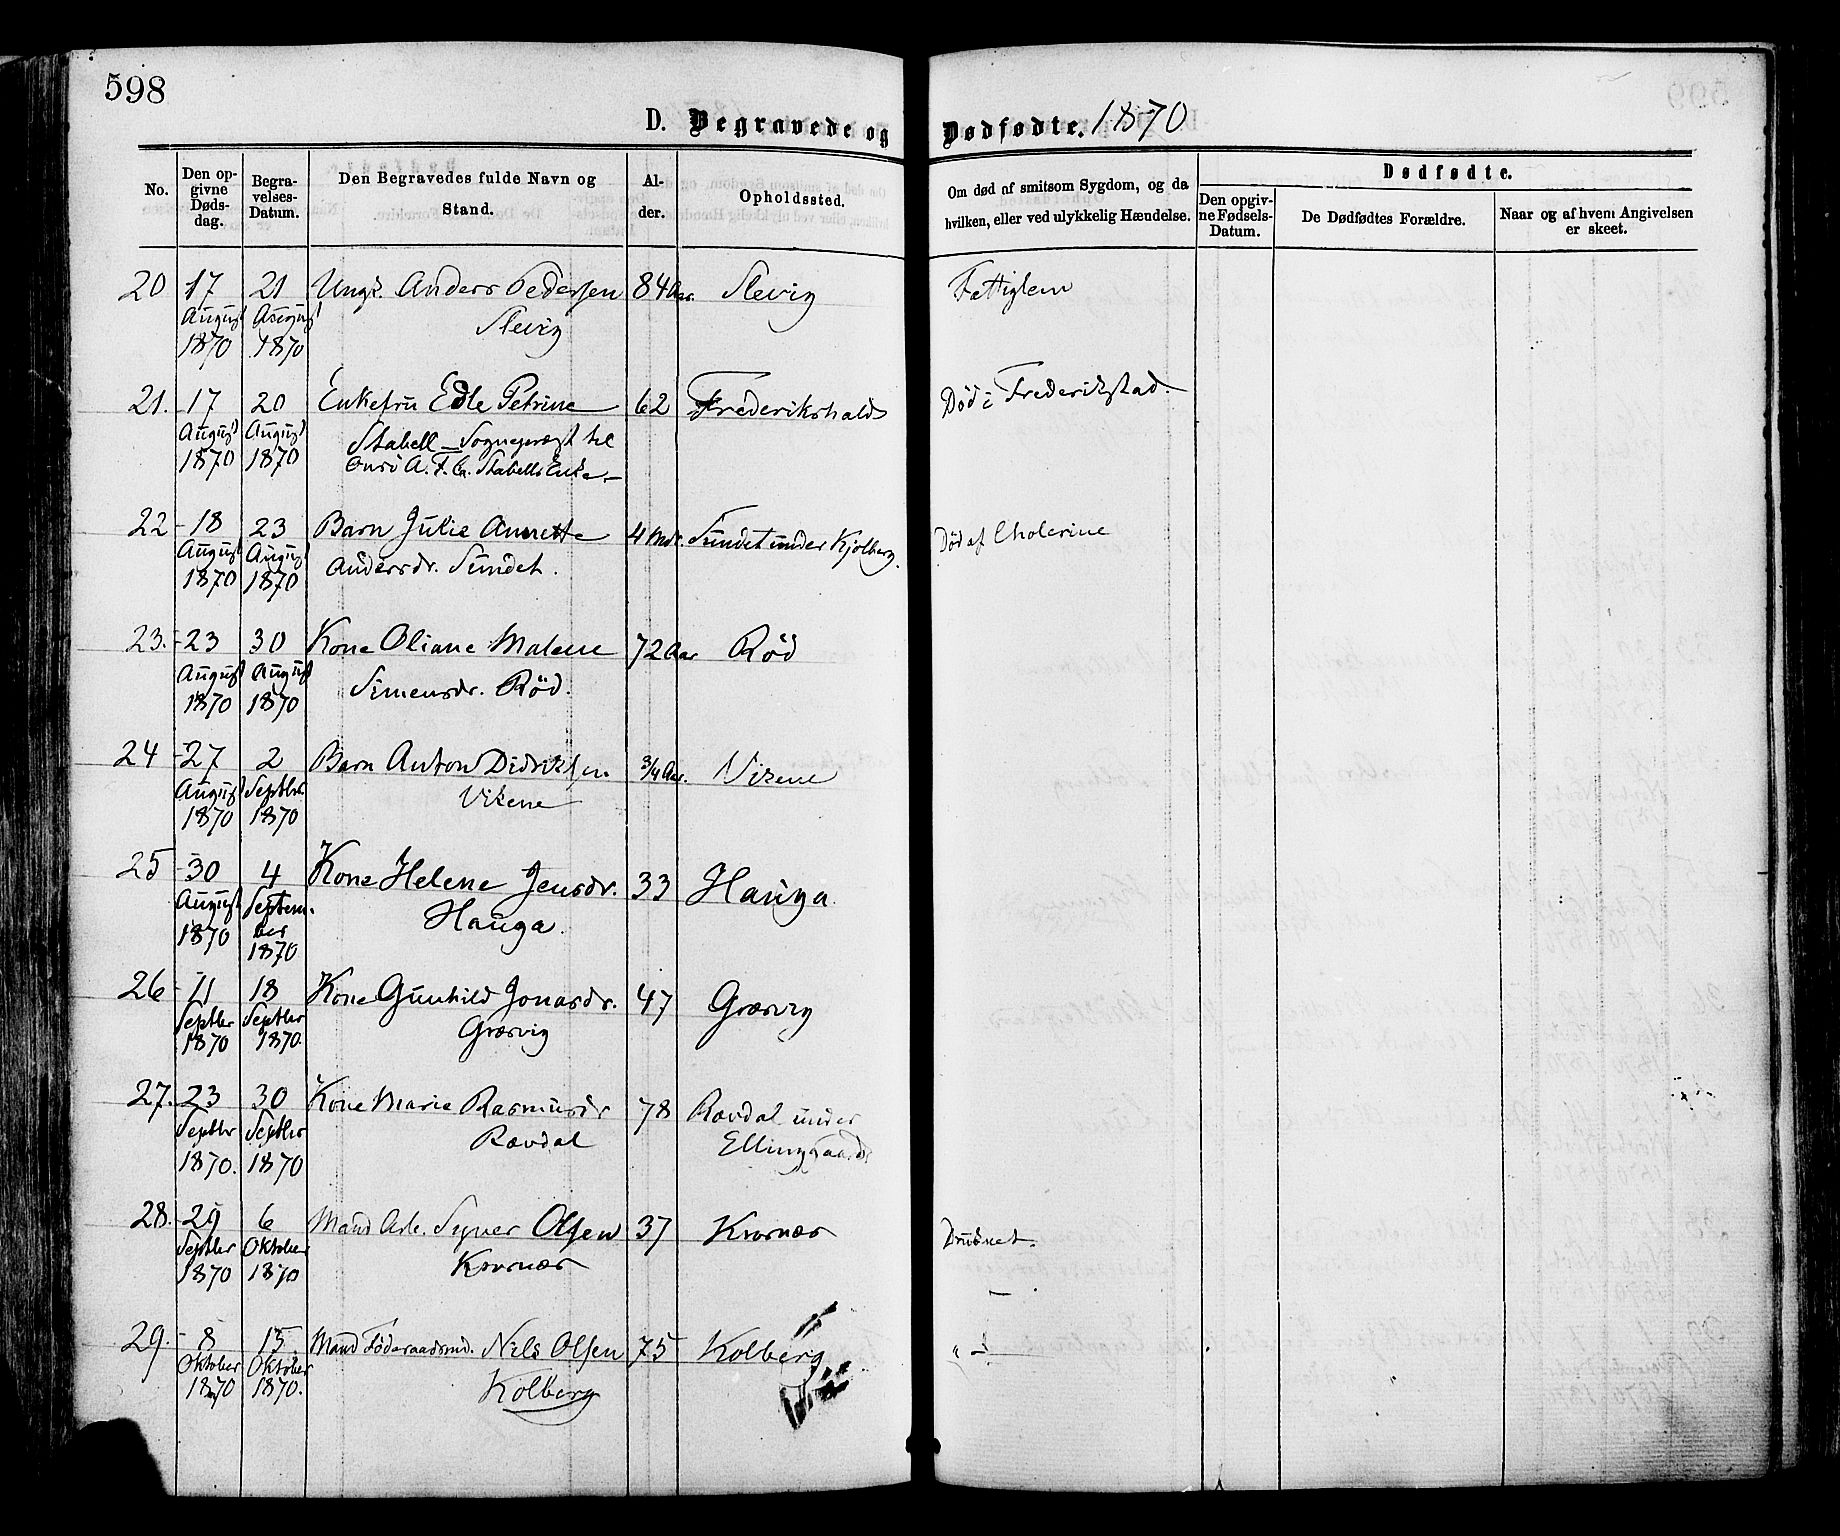 598
D. Begravede og Dødfødte. 1870
No.
Den op-
givne
Døds-
dag.
Begra-
velses-
Datum.
Den Begravedes fulde Navn og
Stand.
Al-
der.
Opholdssted.
Om død af smitsom Sygdom, og da
hvilken, eller ved ulykkelig Hændelse.
Dødfødte.
Den opgiv-
ne Fødsels-
Datum.
De Dødfødtes Forældre.
Naar og af hvem Angivelsen
er skeet.
20 17 21 Ungk. Anders Pedersen 84 Aar. Slevig Fattiglem
August August Slevig
1870 1870
21. 17 20 Enkefru Edle Petrine 62 Frederikshald Død i Frederikstad.
August August Stabell - Sognepræst til
1870 1870 Onsö A. F. G. Stabells Enke -
22 18 23 Barn Julie Annette 4 Mdr. Sundet under Kjølberg. Død af Cholerine
August August Andersdr. Sundet.
1870 1870
23. 23 30 Kone Oliane Malene 72 Aar Rød
August August Simensdr. Rød.
1870 1870
24 27 2 Barn Anton Didriksen 3/4 Aar. Vikene
August Septbr. Vikene
1870 1870
25 30 4 Kone Helene Jensdr. 33 Hauga.
August Septem- Hauga.
1870 ber
1870
26 11 18 Kone Gunhild Jonasdr. 47 Græsvig
Septbr Septbr Græsvig
1870 1870.
27. 23 30 Kone Marie Rasmusdr 78 Rævdal under
Septbr Septbr Rævdal Ellinggaard
1870. 1870
28. 29 6 Mand Arb. Olsen 37 Druknet.
Septbr Oktober
1870 1870
29. 8 15 Mand Föderaadsmd. Nils Olsen 75 Kolberg " -
Oktober Oktober Kolberg
1870 1870.